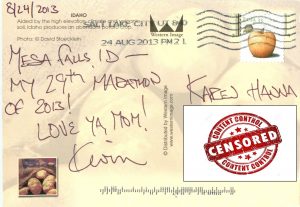 8/24/2013
IDAHO
Aided by the high elevation
soil, Idaho produces an abundant
Photo: © David Stoecklein
SALT LAKE CITY UT
24 AUG 2013 PM 2 L
Western Image
MESA FALLS, ID —
MY 29TH MARATHON
OF 2013!
LOVE YA, MOM!
Kevin
KAREN HANNA
© Distributed by Western Image
CONTENT CONTROL
CENSORED
CONTENT CONTROL